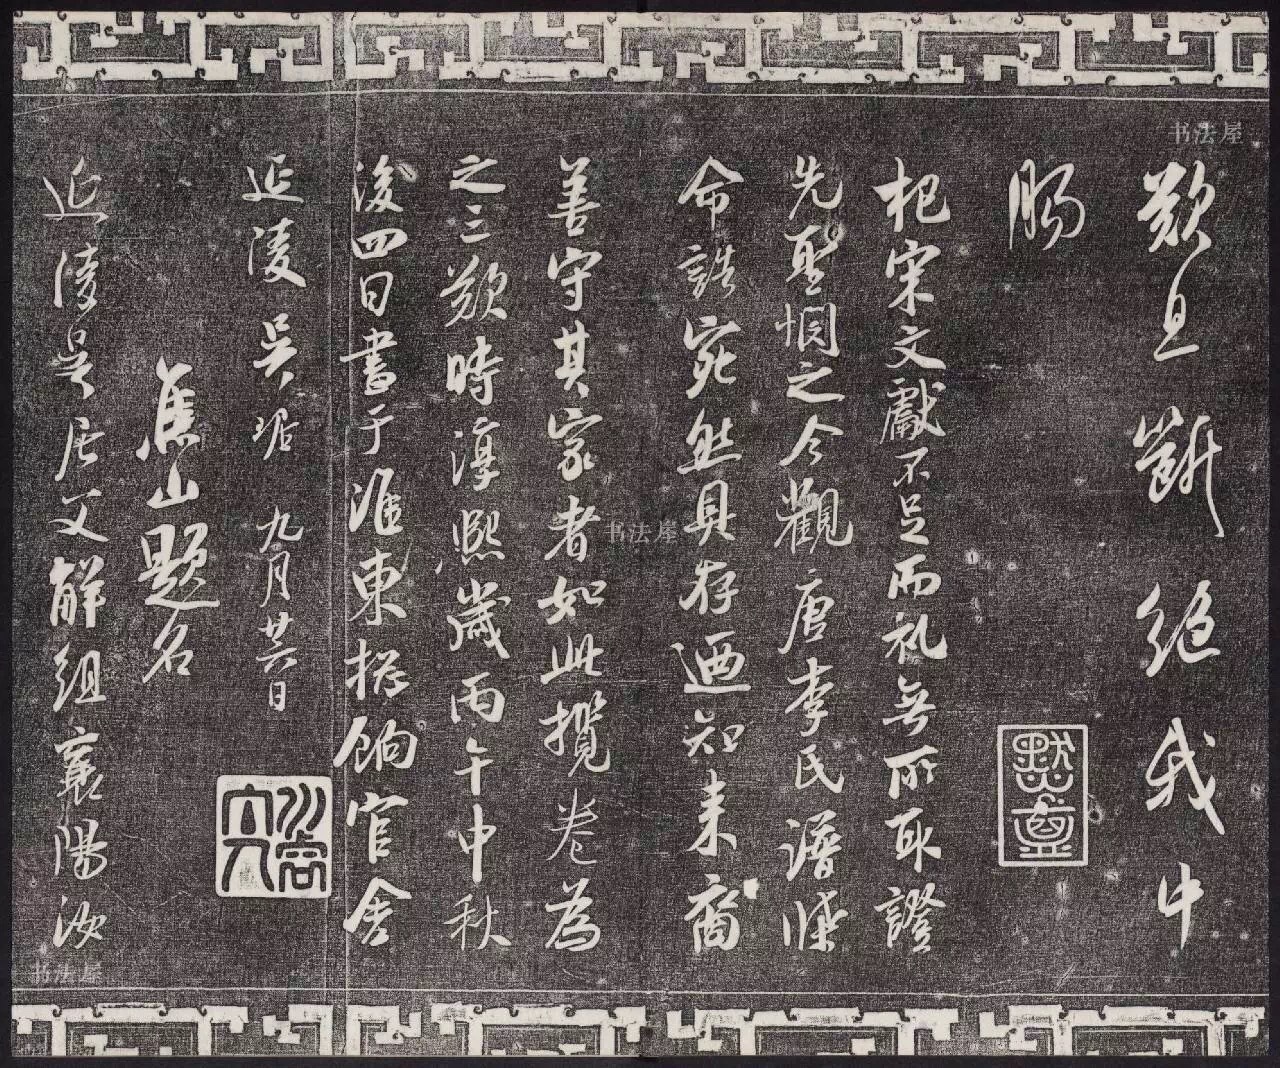 歎息斷絕我中
腸
杞宋文獻不足而礼無所取證
先聖憫之今觀唐李氏譜牒
命誥宛然具存迺知来裔
善守其家者如此攬卷為
之三歎時淳熙歲丙午中秋
後四日書于淮東揔餉官舍
延陵吳琚 九月廿六日
焦山題名
延陵吳居父解組襄陽
书法屋
书法屋
书法屋